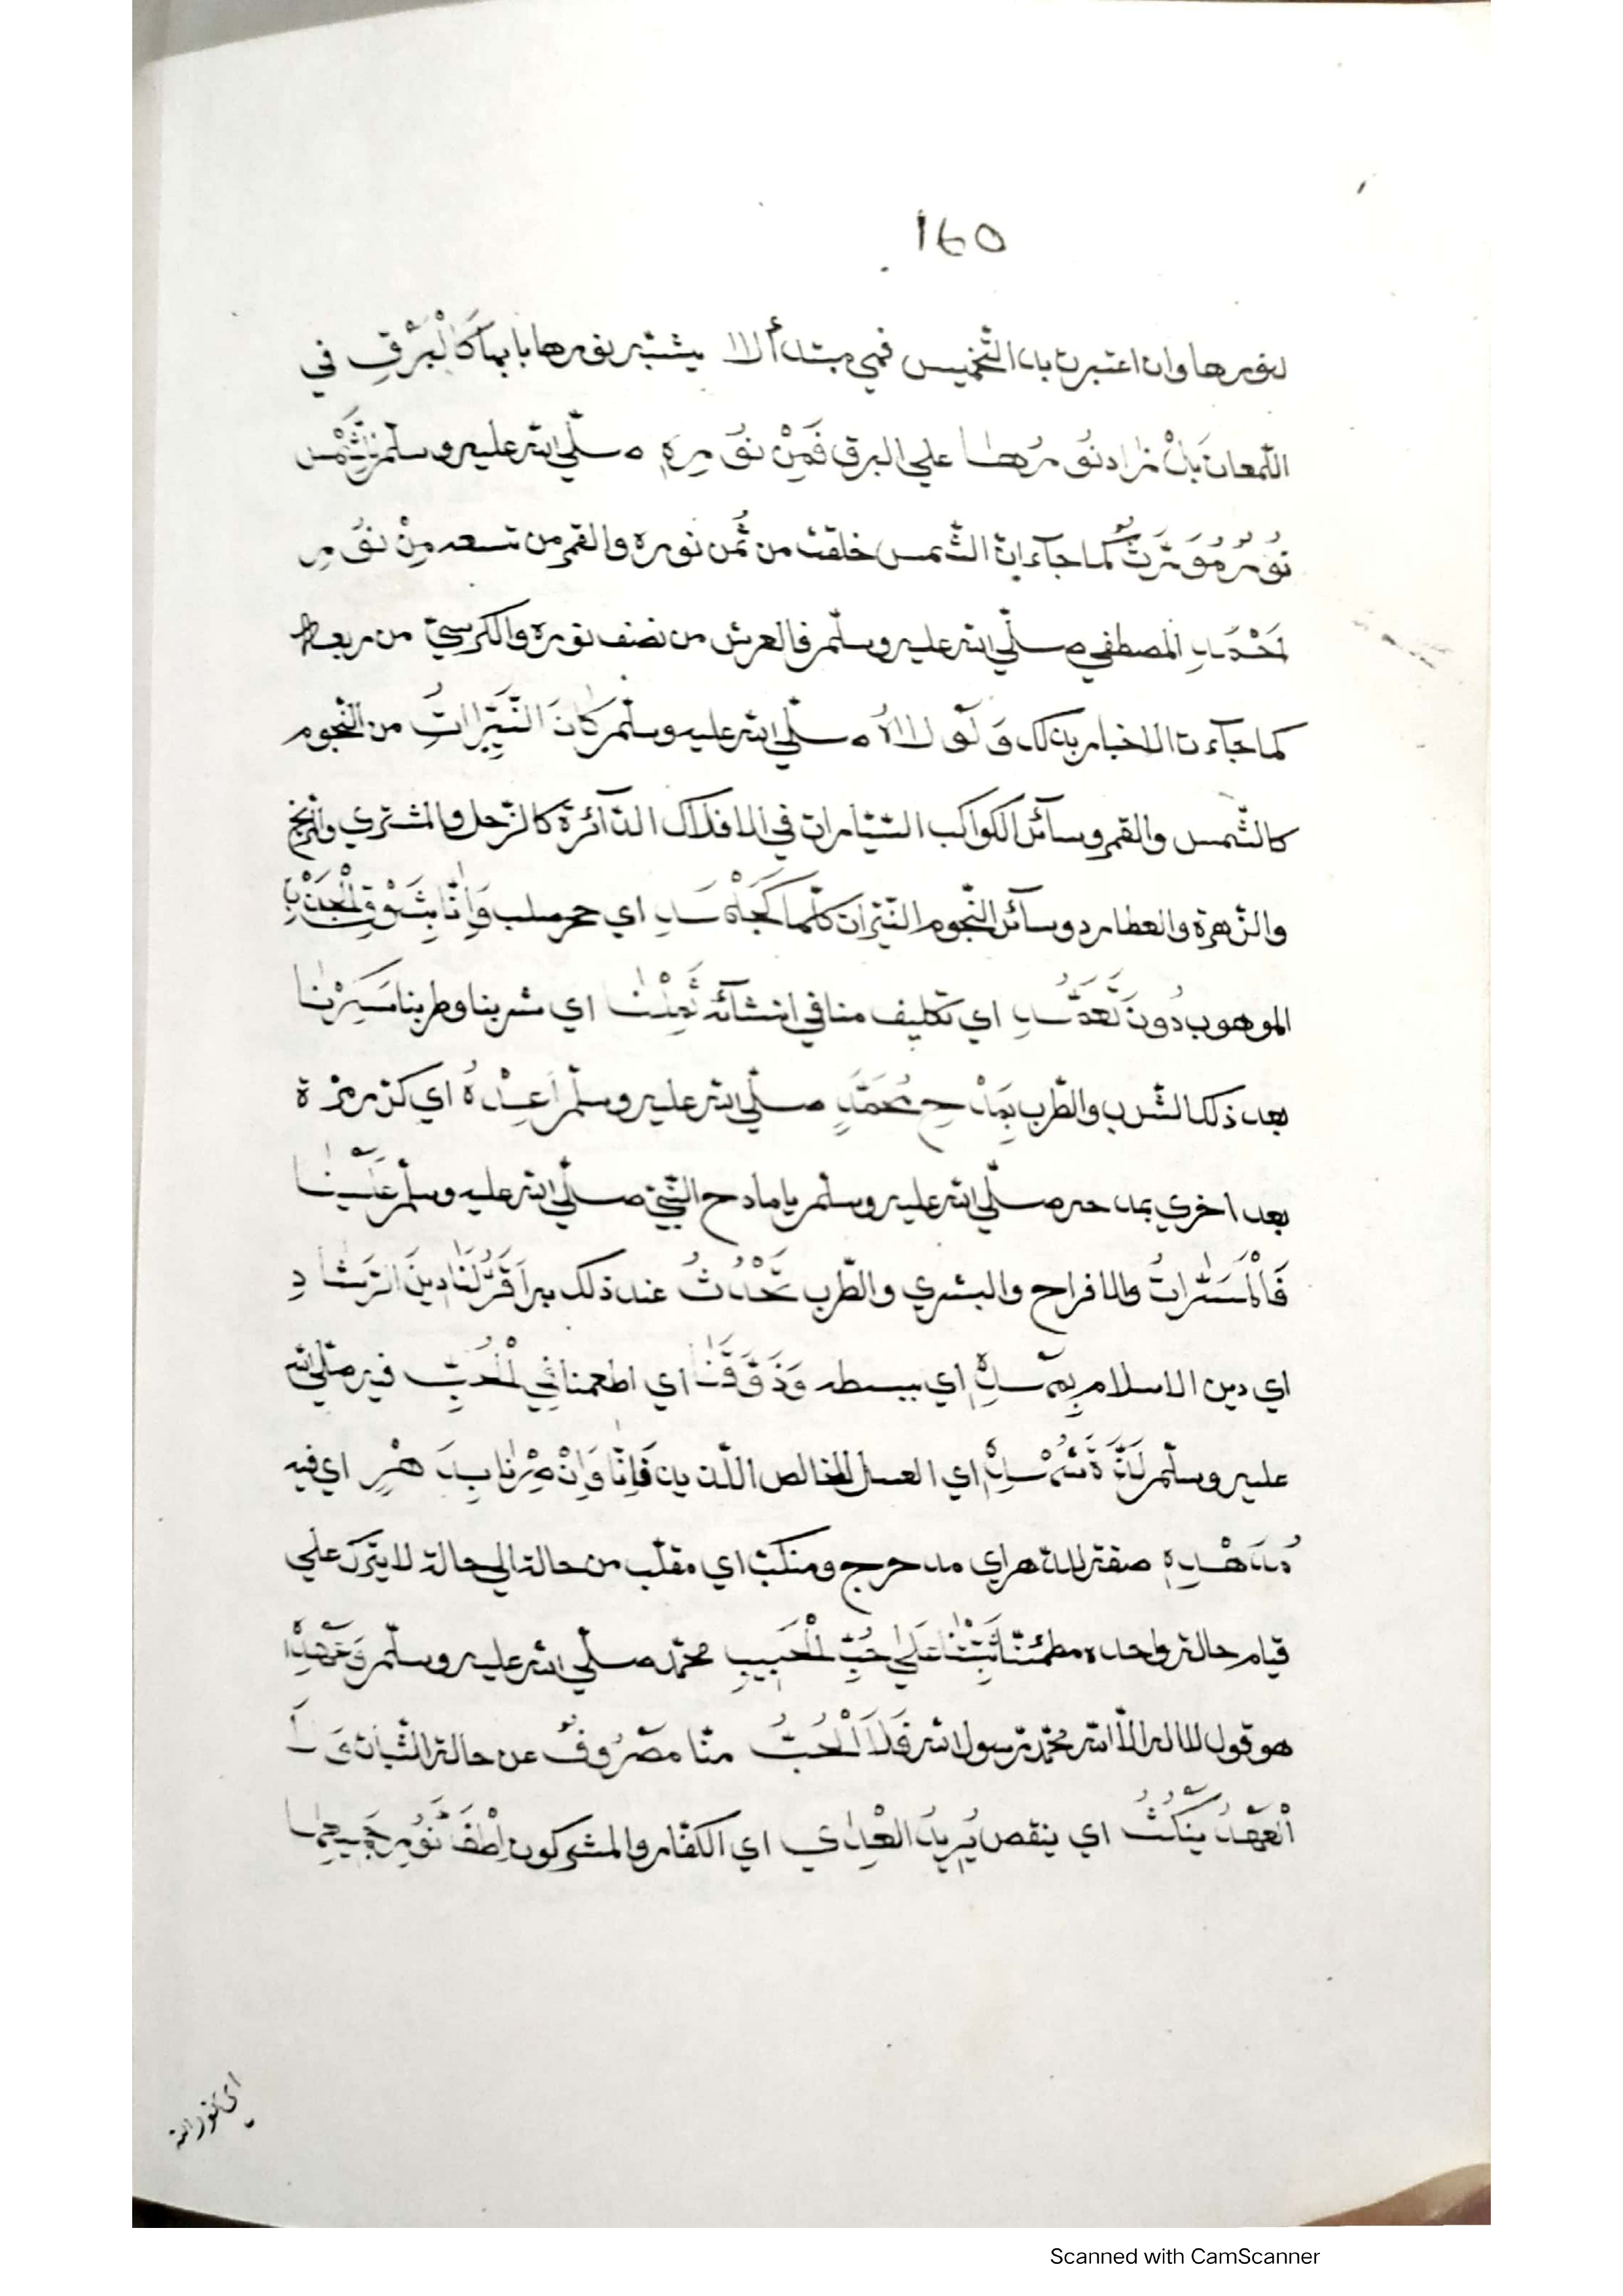 ١٤٥
لنورها وان اعتبرت باب التخميس فهي مبتدأ لا يشتبه نورها بابها كَالْبَرْقِ في
اللّمعان بَلْ زاد نُورُهَا علي البرق فَمِنْ نُورِهِ صلّي الله عليه وسلّم
نُورٌ مُوَرَّثٌ كما جآء انّ الشّمس خلقت من ثُمن نوره والقمر من تسعه مِنْ نُورِ
اَحْمَدِ المصطفي صلّي الله عليه وسلّم فالعرش من نصف نوره والكرسيّ من ربعه
كما جآءت الاخبار بذلك وَلَوْلَاهُ صلّي الله عليه وسلّم كَانَ النَّيِّرَاتُ من النّجوم
كالشّمس والقمر وسآئر الكواكب السّيّارات في الافلاك الدّآئرة كالزّحل والمشتري والمرّيخ
والزّهرة والعطارد وسآئر النّجوم النّيّرات كلّها كَجَلْمَدِ اي حجر صلب وَاِنَّا بِشَوْقِ الْجَذْبِ
الموهوب دُونَ تَعَمُّدِ اي تكليف منا في انشآئه ثَمِلْنَا اي شربنا وطربنا سَيَرْنَا
بعد ذلك الشّرب والطّرب بِمَدْحِ مُحَمَّدٍ صلّي الله عليه وسلّم اَعِدْهُ اي كرّر مرّة
بعد اخري بمدحه صلّي الله عليه وسلّم يا مادح النّبيّ صلّي الله عليه وسلّم عَلَيْنَا
فَالْمَسَرَّاتُ والافراح والبشري والطّرب تَحْدُثُ عند ذلك به اَقَرَّ لَنَا دِينَ الرَّشَادِ
اي دين الاسلام بِمَهْدِهِ اي ببسطه وَذَوَّقَنَا اي اطعمنا فِي الْحُبِّ فيه صلّي الله
عليه وسلّم لَذَّةَ شَهْدِهِ اي العسل الخالص اللّذيذ فَاِنَّا وَاِنْ صِرْنَا بِدَهْرِ اي فيه
مُدَهْدِهِ صفة للدّهر اي مدحرج ومنكّب اي مقلّب من حالة الي حالة لا يترك علي
قيام حالة واحده مطمئنّا ثَبَتْنَا عَلَي حُبِّ الْحَبِيبِ محمّد صلّي الله عليه وسلّم وَعَهْدِهِ
هو قول لا اله الّا الله محمّد رسول الله فَلَا الْحُبُّ منّا مَصْرُوفٌ عن حالة الثّبات وَلَا
الْعَهْدُ يُنْكَثُ اي ينقص يُرِيدُ الْعِدَي اي الكفّار والمشركون اِطْفَا نُورِ جَمِيعِهَا
اي نور الله
Scanned with CamScanner